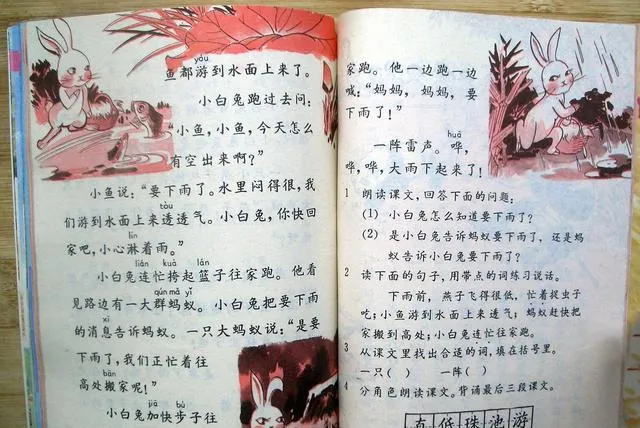 yóu
鱼都游到水面上来了。
小白兔跑过去问：
“小鱼，小鱼，今天怎么
有空出来啊？”
小鱼说：“要下雨了。水里闷得很，我
tòu
们游到水面上来透透气。小白兔，你快回
lín
家吧，小心淋着雨。”
lián kuà lán
小白兔连忙挎起篮子往家跑。他看
qún mǎ yǐ
见路边有一大群蚂蚁。小白兔把要下雨
xi
的消息告诉蚂蚁。一只大蚂蚁说：“是要
下雨了，我们正忙着往
bān
高处搬家呢！”
jiā bù
小白兔加快步子往
家跑。他一边跑一边
喊：“妈妈，妈妈，要
下雨了！”
huā
一阵雷声。哗，
哗，哗，大雨下起来了！
1 朗读课文，回答下面的问题：
(1) 小白兔怎么知道要下雨了？
(2) 是小白兔告诉蚂蚁要下雨了，还是蚂
蚁告诉小白兔要下雨了？
2 读下面的句子，用带点的词练习说话。
下雨前，燕子飞得很低，忙着捉虫子
吃；小鱼游到水面上来透气；蚂蚁赶快把
家搬到高处；小白兔连忙往家跑。
3 从课文里找出合适的词，填在括号里。
一只（ ） 一阵（ ）
4 分角色朗读课文。背诵最后三段课文。
低 珠 池 游